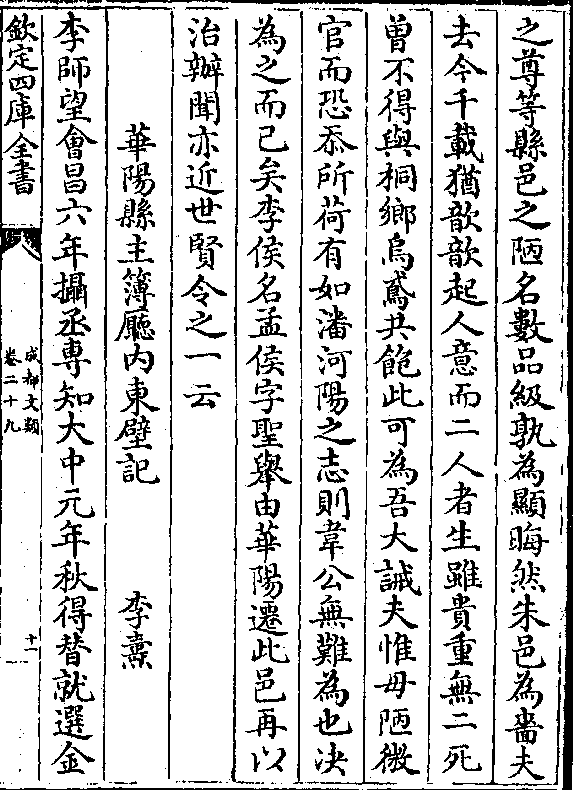 之尊等縣邑之陋名數品級孰為顯晦然朱邑為嗇夫
去今千載猶歆歆起人意而二人者生雖貴重無二死
曽不得與桐鄉烏鳶共飽此可為吾大誡夫惟毋陋微
官而恐忝所荷有如潘河陽之志則韋公無難為也决
為之而已矣李侯名孟侯字聖舉由華陽遷此邑再以
治辦聞亦近世賢令之一云
華陽縣主簿廳内東壁記 李燾
李師望會昌六年攝丞専知大中元年秋得替就選金
欽定四庫全書
成都文類
卷二十九
十一